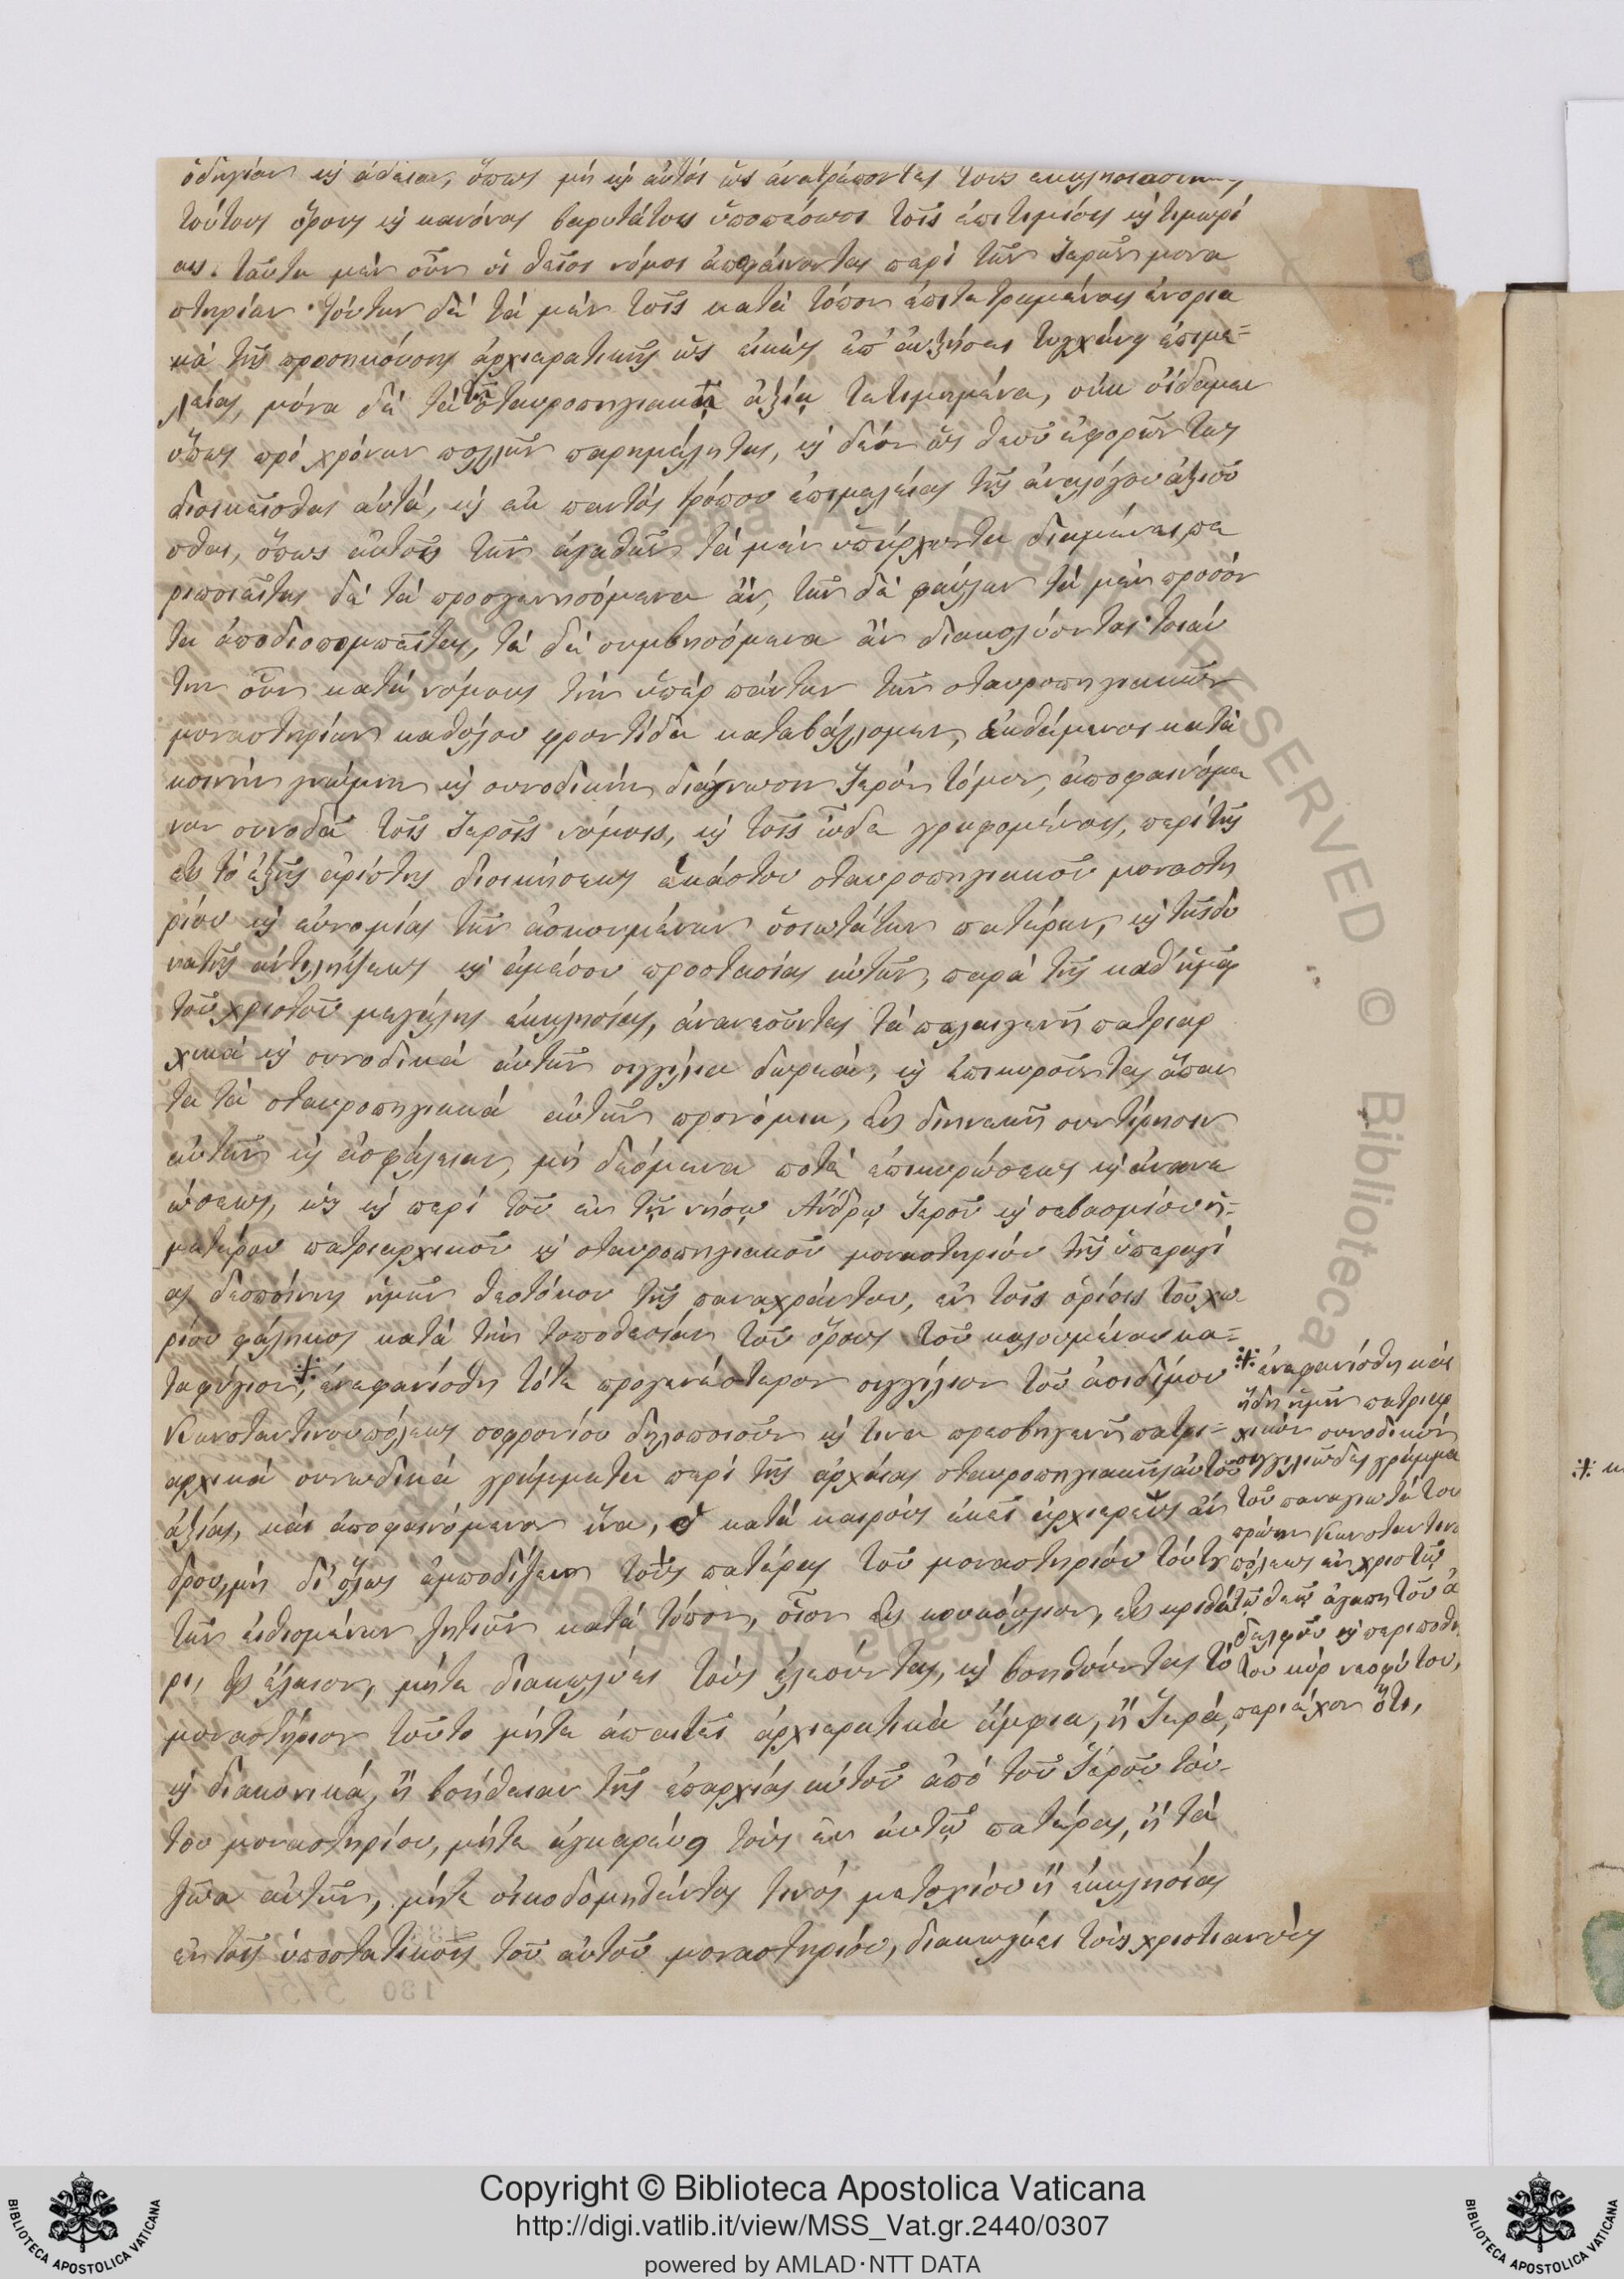 ὁδηγίαν καὶ ἄδειαν, ὅπως μὴ καὶ αὐτοὶ ὡς ἀνατρέποντες τοὺς ἐκκλησιαστικοὺς
τούτους ὅρους καὶ κανόνας βαρυτάτοις ὑποπέσωσι τοῖς ἐπιτιμίοις καὶ τιμωρί
αις. ταῦτα μὲν οὖν οἱ θεῖοι νόμοι ἀποφαίνονται περὶ τῶν ἱερῶν μονα
στηρίων· τούτων δὲ τὰ μὲν τοῖς κατὰ τόπον ἐπιτετραμμένοις ἐνορια
κὰ τῆς προσηκούσης ἀρχιερατικῆς ὡς εἰκὸς ἐπ' αὐξήσει τυγχάνῃ ἐπιμε=
λείας, μόνα δὲ τὰ τῇ σταυροπηγιακῇ ἀξίᾳ τετιμημένα, οὐκ οἴδαμεν
ὅπως πρὸ χρόνων πολλῶν παρημέληται, καὶ δέον ὡς θεοῦ ἐφορῶντος
διοικεῖσθαι αὐτά, καὶ ἐκ παντὸς τρόπου ἐπιμελείας τῆς ἀναλόγου ἀξιοῦ
σθαι, ὅπως αὐτοῖς τῶν ἀγαθῶν τὰ μὲν ὑπάρχοντα διαμένει πε
ριποιεῖται δὲ τὰ προσγενησόμενα ἄν, τῶν δὲ φαύλων τὰ μὲν προσόν
τα ἀποδιοπομπεῖται, τὰ δὲ συμβησόμενα ἂν διακωλύονται· τοιαύ
την οὖν κατὰ νόμους τὴν ὑπὲρ πάντων τῶν σταυροπηγιακῶν
μοναστηρίων καθόλου φροντίδα καταβάλλομεν, ἐκθέμενοι κατὰ
κοινὴν γνώμην καὶ συνοδικὴν διάγνωσιν ἱερὸν τόμον, ἀποφαινόμε
νον συνοδὰ τοῖς ἱεροῖς νόμοις, καὶ τοῖς ὧδε γραφομένοις, περὶ τῆς
εἰς τὸ ἑξῆς ἀρίστης διοικήσεως ἑκάστου σταυροπηγιακοῦ μοναστη
ρίου καὶ εὐνομίας τῶν ἀσκουμένων ὁσιωτάτων πατέρων, καὶ τῆς δυ
νατῆς ἀντιλήψεως καὶ ἀμέσου προστασίας αὐτῶν, παρὰ τῆς καθ' ἡμᾶς
τοῦ χριστοῦ μεγάλης ἐκκλησίας, ἀνανεοῦντες τὰ παλαιγενῆ πατριαρ
χικὰ καὶ συνοδικὰ αὐτῶν σιγγίλια δωρεάν, καὶ ἐπικυροῦντες ἅπαν
τα τὰ σταυροπηγιακὰ αὐτῶν προνόμια, εἰς διηνεκῆ συντήρησιν
αὐτῶν καὶ ἀσφάλειαν, μὴ δεόμενα ποτὲ ἐπικυρώσεως καὶ ἀνανε
ώσεως, ὡς καὶ περὶ τοῦ ἐν τῇ νήσῳ Ἄνδρῳ ἱεροῦ καὶ σεβασμίου ἡ=
μετέρου πατριαρχικοῦ καὶ σταυροπηγιακοῦ μοναστηρίου τῆς ὑπεραγί
ας δεσποίνης ἡμῶν θεοτόκου τῆς παναχράντου, ἐν τοῖς ὁρίοις τοῦ χω
ρίου φάλληκος κατὰ τὴν τοποθεσίαν τοῦ ὄρους τοῦ καλουμένου κα=
ταφύγιον,※ ἐνεφανίσθη τότε προγενέστερον σιγγίλιον τοῦ ἀοιδίμου
Κωνσταντινουπόλεως σοφρονίου δηλοποιοῦν καὶ τινα πρεσβηγενῆ πατρι=
αρχικὰ συνωδικὰ γράμματα περὶ τῆς ἀρχαίας σταυροπηγιακῆς αὐτοῦ
ἀξίας, καὶ ἀποφαινόμενον ἵνα, ὁ κατὰ καιροὺς ἐκεῖ ἀρχιερεὺς ἄν
δρου, μὴ δι' ὅλως ἐμποδίζειν τοὺς πατέρας τοῦ μοναστηρίου τούτου
τῶν εἰθισμένων ζητιῶν κατὰ τόπον, οἷον εἰς κουκούλιον, εἰς κριθά
ρι, εἰς ἔλαιον, μήτε διακωλύει τοὺς ἐλεοῦντας, καὶ βοηθοῦντας τὸ
μοναστήριον τοῦτο μήτε ἀπαιτεῖ ἀρχιερατικὰ ἄμφια, ἢ ἱερά,
καὶ διακονικά, ἢ βοήθειαν τῆς ἐπαρχίας αὐτοῦ ἀπὸ τοῦ ἱεροῦ τού-
του μοναστηρίου, μήτε ἀγκαρεύῃ τοὺς ἐν αὐτῷ πατέρας, ἢ τὰ
ζῶα αὐτῶν, μήτε οἰκοδομηθέντος τινὸς μετοχίου ἢ ἐκκλησίας
ἐν τοῖς ὑποστατικοῖς τοῦ αὐτοῦ μοναστηρίου, διακωλύει τοὺς χριστιανοὺς
※ ἐνεφανίσθη καὶ
ἤδη ἡμῖν πατριαρ
χικὸν συνοδικὸν
σιγγιλιῶδες γράμμα
τοῦ παναγιωτάτου
πρώην Κωνσταντινου
πόλεως ἐν χριστῷ
τῷ θεῷ ἀγαπητοῦ ἀ
δελφοῦ καὶ περιποθή
του κὺρ νεοφύτου,
περιέχον ὅτι,
Copyright © Biblioteca Apostolica Vaticana
http://digi.vatlib.it/view/MSS_Vat.gr.2440/0307
powered by AMLAD·NTT DATA
BIBLIOTECA APOSTOLICA VATICANA
BIBLIOTECA APOSTOLICA VATICANA